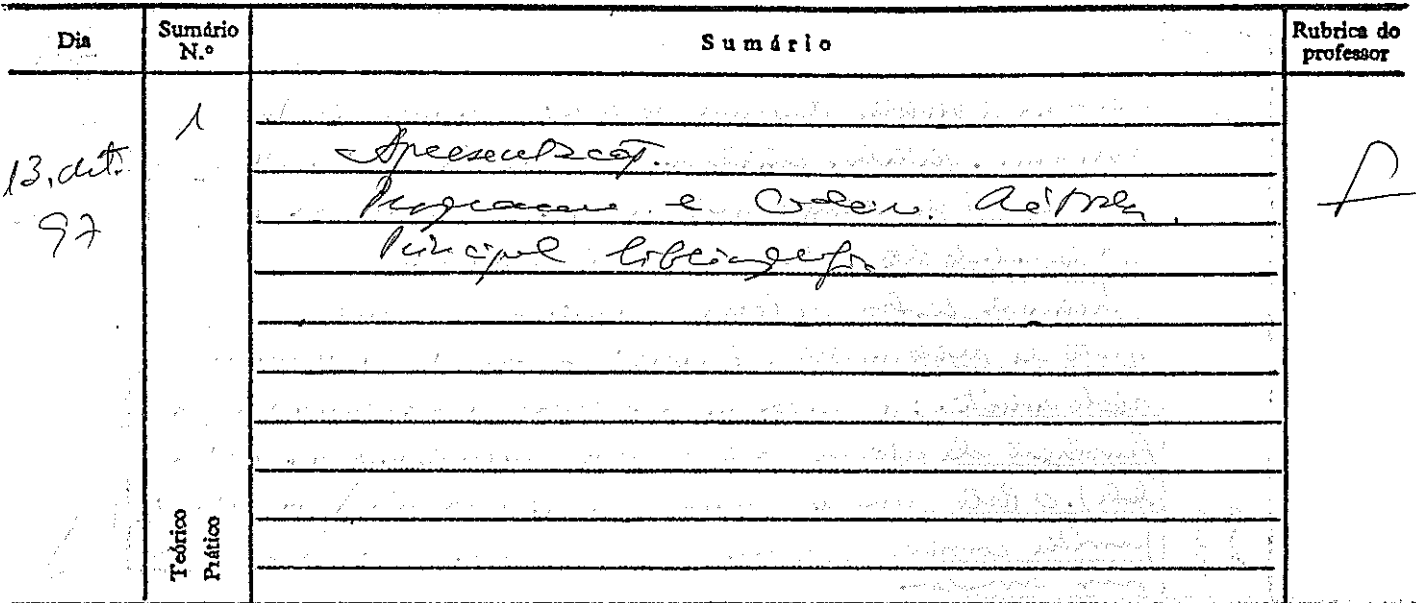 Dia
Sumário N.º
Sumário
Rubrica do professor
13. Out. 97
1
Apresentação.
Programa e
Principal bibliografia
Teórico
Prático